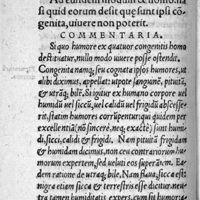 Ad eundem modum & homo, na
si quid eorum desit quę sunt ipsi cō
genita, uiuere non poterit.
COMMENTARIA.
Si quo humore ex quatuor congenitis homo
destituatur, nullo modo uiuere posse ostendit.
Congenita namq́;, seu cognata ipsos humores, ut
alibi docuimus, appellat: utpote sanguinē, pituitā,
& utrāq; bilē. Si igitur ex humano corpore uel
humidū uel siccū, uel calidū uel frigidū abscesse-
rit, statim humores corrūpentur: quū quidem per
excellentiā (nō syncerè, neq; exactè) sunt humi-
di, sicci, calidi & frigidi. Nam pituitā frigidam
& humidam dicimus, non cen contrariorū hu-
morum expertem, sed ueluti eos superātem. Ea-
dem ratione de utraq; bile. Nam flaua, sicca est
nigra etiam sicca & terrestris esse dicitur, neut
tra tamen humiditatis expers, cum sit humor,